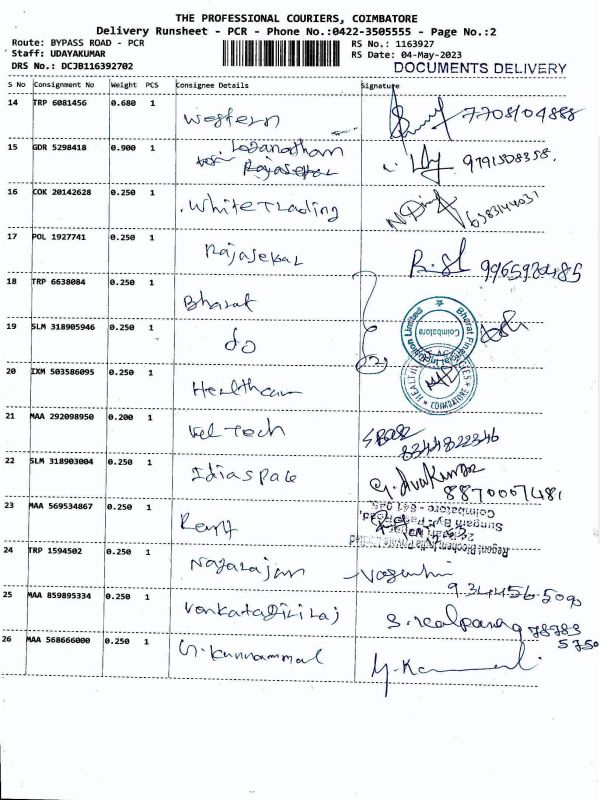 THE PROFESSIONAL COURIERS, COIMBATORE
Delivery Runsheet - PCR - Phone No.:0422-3505555 - Page No.:2
Route: BYPASS ROAD - PCR RS No.: 1163927
Staff: UDAYAKUMAR RS Date: 04-May-2023
DRS No.: DCJB116392702 DOCUMENTS DELIVERY
S No Consignment No Weight PCS Consignee Details Signature
14 TRP 6081456 0.680 1 Western 7708104888
15 GDR 5298418 0.900 1 Loganatham Rajasekar 9791508358.
16 COK 20142628 0.250 1 White Trading 6383144031
17 POL 1927741 0.250 1 Rajasekar 9965920485
18 TRP 6638084 0.250 1 Bharat
19 SLM 318905946 0.250 1 do
Bharat Financial Inclusion Limited Coimbatore
20 IXM 503586095 0.250 1 Healthcare
COIMBATORE
21 MAA 292098950 0.200 1 Vel Tech 8344822346
22 SLM 318903004 0.250 1 Idiaspace G. Sivakumar
8870007481
23 MAA 569534867 0.250 1
Regent Biochem India Private Limited
Sungam Bye Pass Road,
Coimbatore - 641 045
24 TRP 1594502 0.250 1 Nagarajan Vasanthi
25 MAA 859895334 0.250 1 Venkatagiriraj S. Kalpana
26 MAA 568666000 0.250 1 G. Kunnammal